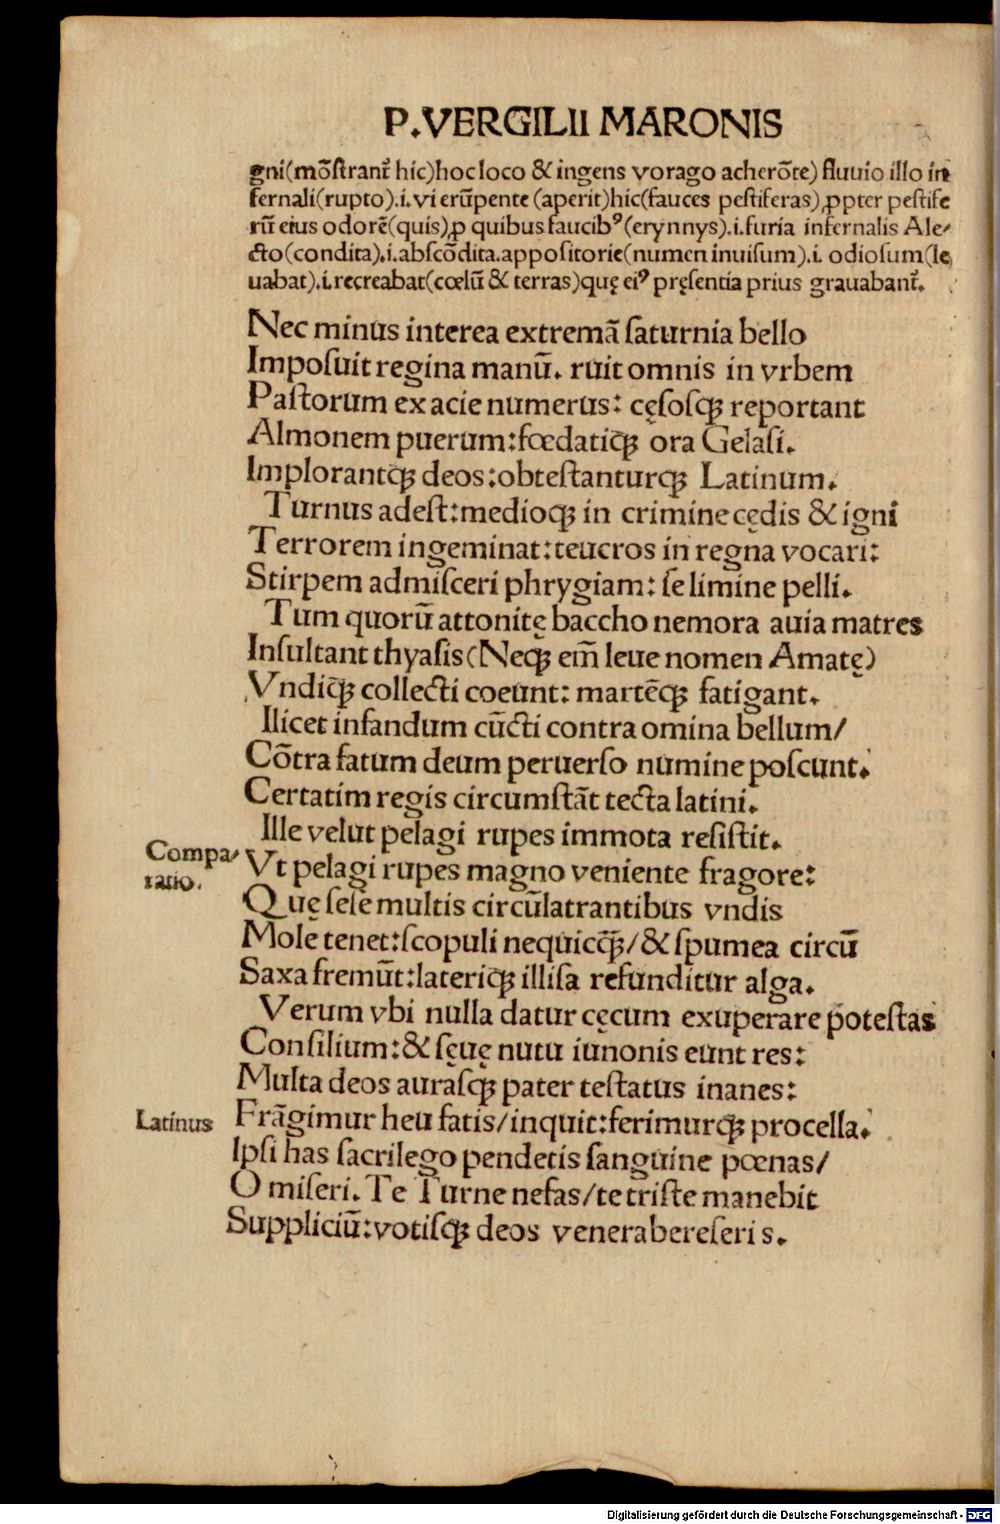 P.VERGILII MARONIS
gni(mõſtrant᷑ hic)hoc loco & ingens vorago acherõte) fluuio illo in
fernali(rupto).i.vi erũpente (aperit)hic(fauces peſtiferas)ꝓpter peſtife
rũ eius odorẽ(quis)ꝓ quibus faucibꝰ(erynnys).i.furia infernalis Ale⸗
cto(condita).i.abſcõdita.appoſitorie(numen inuiſum).i. odioſum(le
uabat).i.recreabat(cœlũ & terras)quę eiꝰ pręſentia prius grauabant᷑.
Nec minus interea extremã ſaturnia bello
Impoſuit regina manũ. ruit omnis in vrbem
Paſtorum ex acie numerus: cęſoſqꝫ reportant
Almonem puerum:fœdatiqꝫ ora Gelaſi.
Implorantqꝫ deos:obteſtanturqꝫ Latinum.
Turnus adeſt:medioqꝫ in crimine cędis & igni
Terrorem ingeminat:teucros in regna vocari:
Stirpem admiſceri phrygiam: ſe limine pelli.
Tum quorũ attonitę baccho nemora auia matres
Inſultant thyaſis(Neqꝫ em̃ leue nomen Amatę)
Vndiqꝫ collecti coeunt: martẽqꝫ fatigant.
Ilicet infandum cũcti contra omina bellum/
Cõtra fatum deum peruerſo numine poſcunt.
Certatim regis circumſtãt tecta latini.
Ille velut pelagi rupes immota reſiſtit.
Compa⸗
ratio.
Vt pelagi rupes magno veniente fragore:
Quę ſeſe multis circũlatrantibus vndis
Mole tenet:ſcopuli nequicq̃ꝫ/& ſpumea circũ
Saxa fremũt:lateriqꝫ illiſa refunditur alga.
Verum vbi nulla datur cęcum exuperare poteſtas
Conſilium:& ſęuę nutu iunonis eunt res:
Multa deos auraſqꝫ pater teſtatus inanes:
Latinus
Frãgimur heu fatis/inquit:ferimurqꝫ procella.
Ipſi has ſacrilego pendetis ſanguine pœnas/
O miſeri. Te Turne nefas/te triſte manebit
Suppliciũ:votiſqꝫ deos venerabere ſeris.
Digitalisierung gefördert durch die Deutsche Forschungsgemeinschaft - DFG